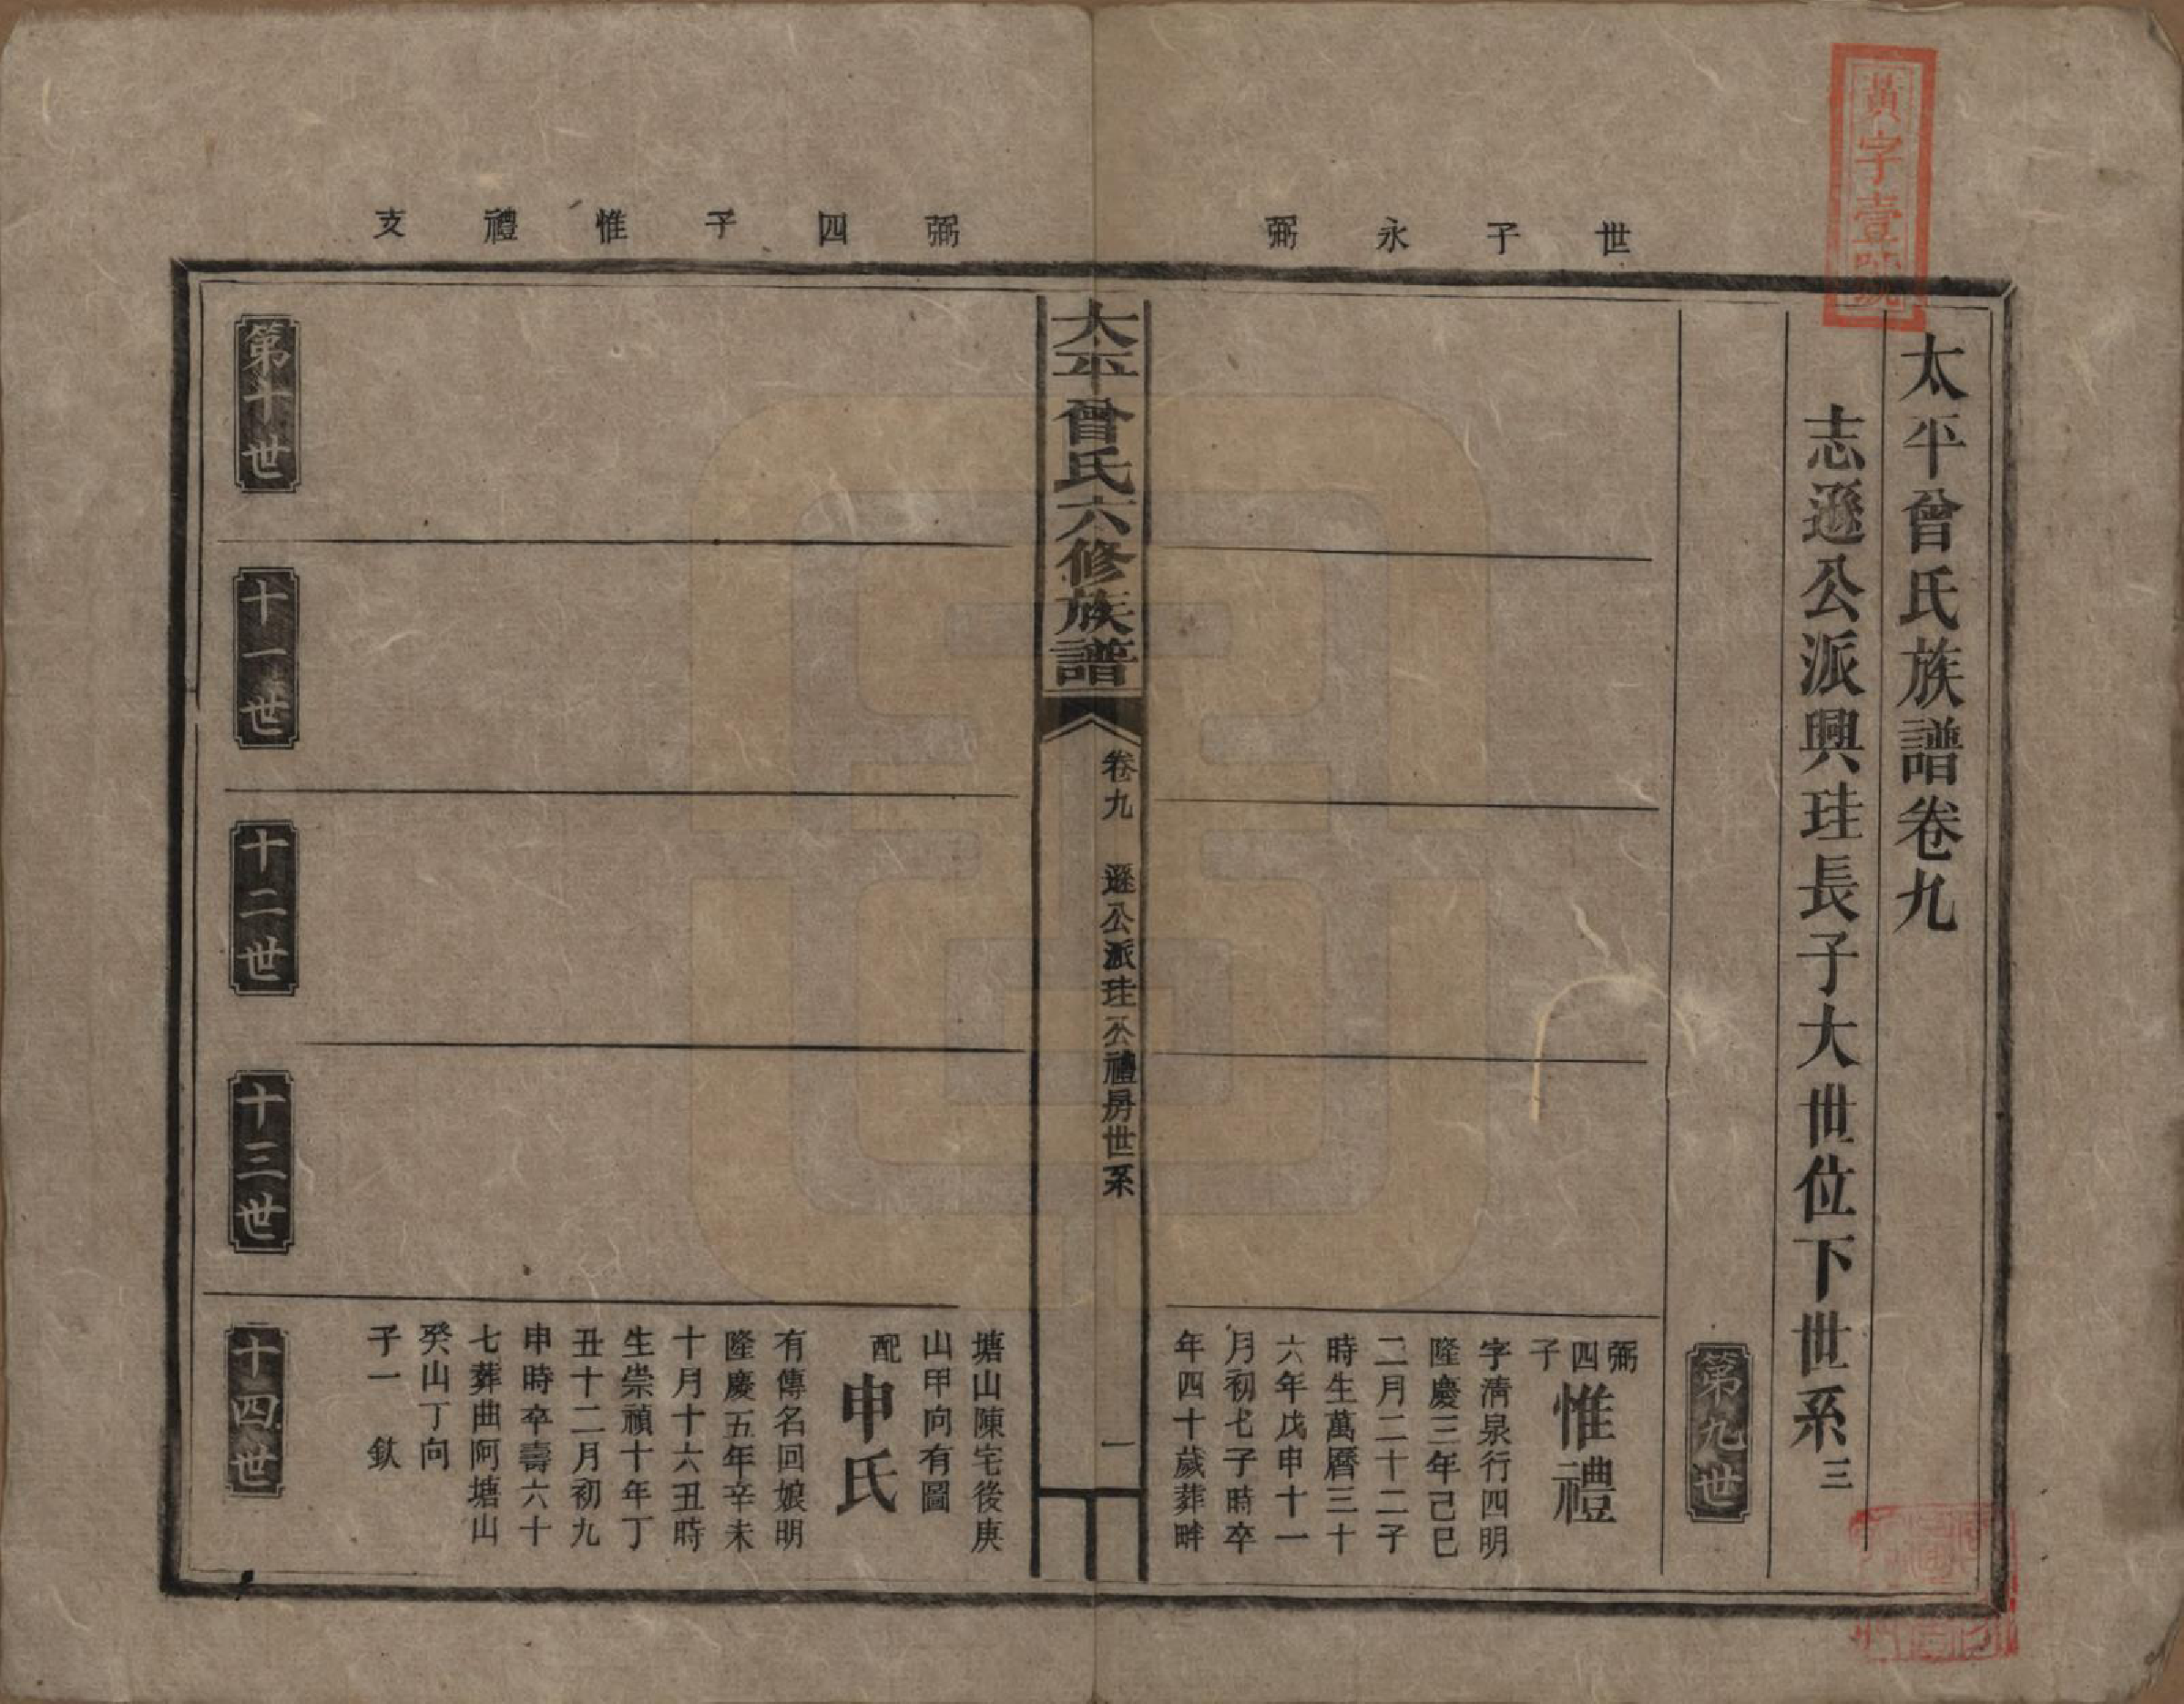 黃字壹號
太平曾氏族譜卷九
志遜公派興珪長子大世位下世系三
世子永弼
第九世
弼四子惟禮
字清泉行四明
隆慶三年己巳
二月二十二子
時生萬曆三十
六年戊申十一
月初七子時卒
年四十歲葬畔
太平曾氏六修族譜
卷九 遜公派珪公禮房世系
一
弼四子惟禮支
塘山陳宅後庚
山甲向有圖
配申氏
有傳名回娘明
隆慶五年辛未
十月十六丑時
生崇禎十年丁
丑十二月初九
申時卒壽六十
七葬曲阿塘山
癸山丁向
子一 欽
第十世
十一世
十二世
十三世
十四世